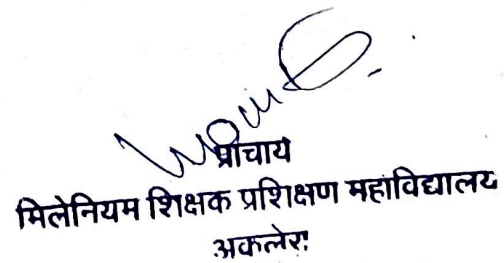 प्राचार्य
मिलेनियम शिक्षक प्रशिक्षण महाविद्यालय
अकलेरा